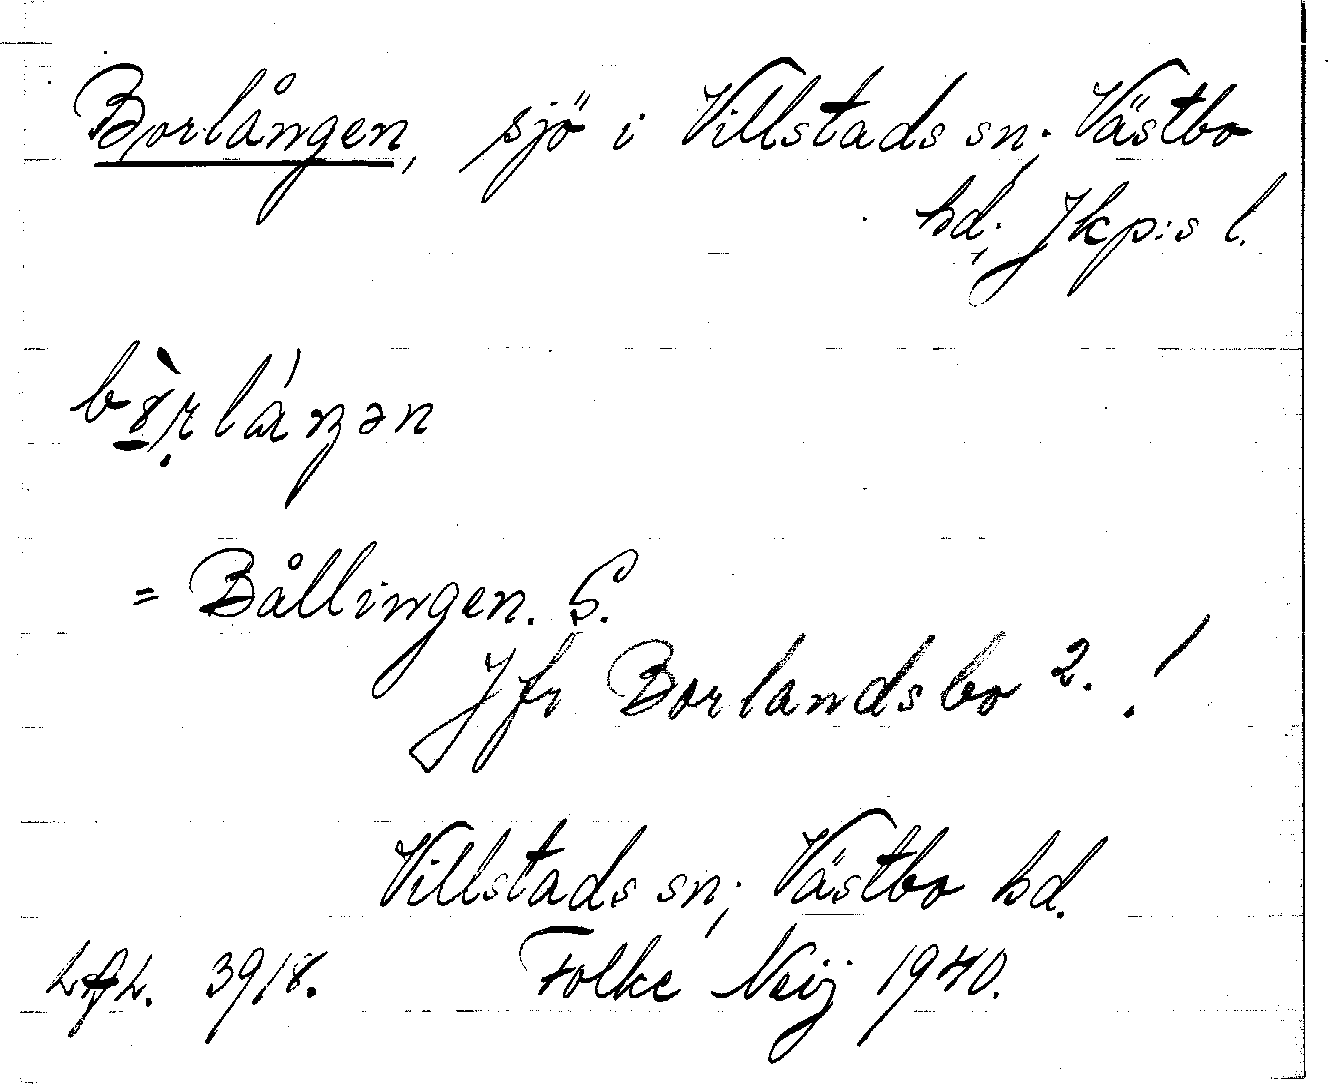 Borlången, sjö i Villstads sn; Västbo
hd; Jkp:s l.
lánən
= Bållingen. S.
Jfr Borlandsbo 2. !
Villstads sn; Västbo hd.
3918. Folke Neij 1940.